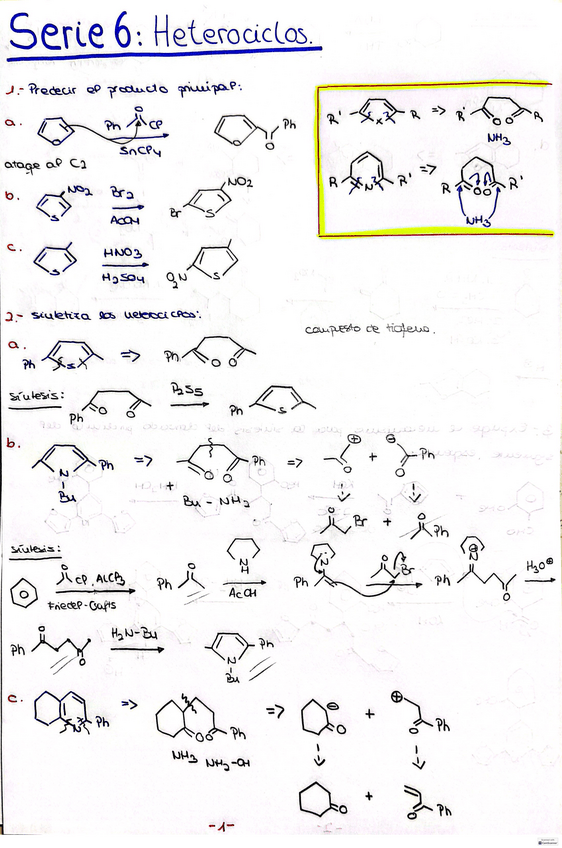 Serie 6: Heterociclos.
1.- Predecir el producto principal:
a. O Ph O Cl SnCl4 O Ph O
ataque al C2
b. NO2 S Br2 AcOH Br S NO2
c. S HNO3 H2SO4 O2N S
R' X R => R' O O R
NH3
R N R' => R O O R'
NH3
2.- Sintetiza los heterociclos:
compuesto de tiofeno.
a. Ph S => Ph O O
síntesis: Ph O O P2S5 Ph S
b. N Ph Bu => O O Ph + Bu-NH2 => ⊕ O + ⊖ O Ph
O Br + O Ph
síntesis:
O Cl, AlCl3 Friedel-Crafts Ph O N H AcOH Ph N O Br Ph N ⊕ O H3O⊕
Ph O O H2N-Bu N Bu Ph
c. N Ph => O O Ph => ⊖ O + ⊕ O Ph
NH3 NH2-OH
O + O Ph
-1-